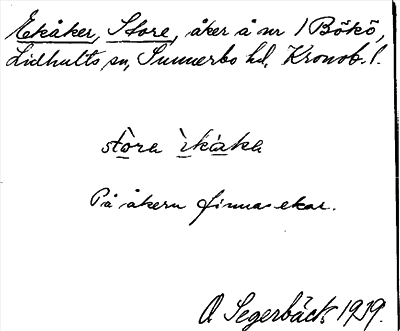 Ekåker, Store, åker å nr 1 Bökö,
Lidhults sn, Sunnerbo hd, Kronob. l.
stòra ìkáka
På åkern finnas ekar.
A Segerbäck 1919.